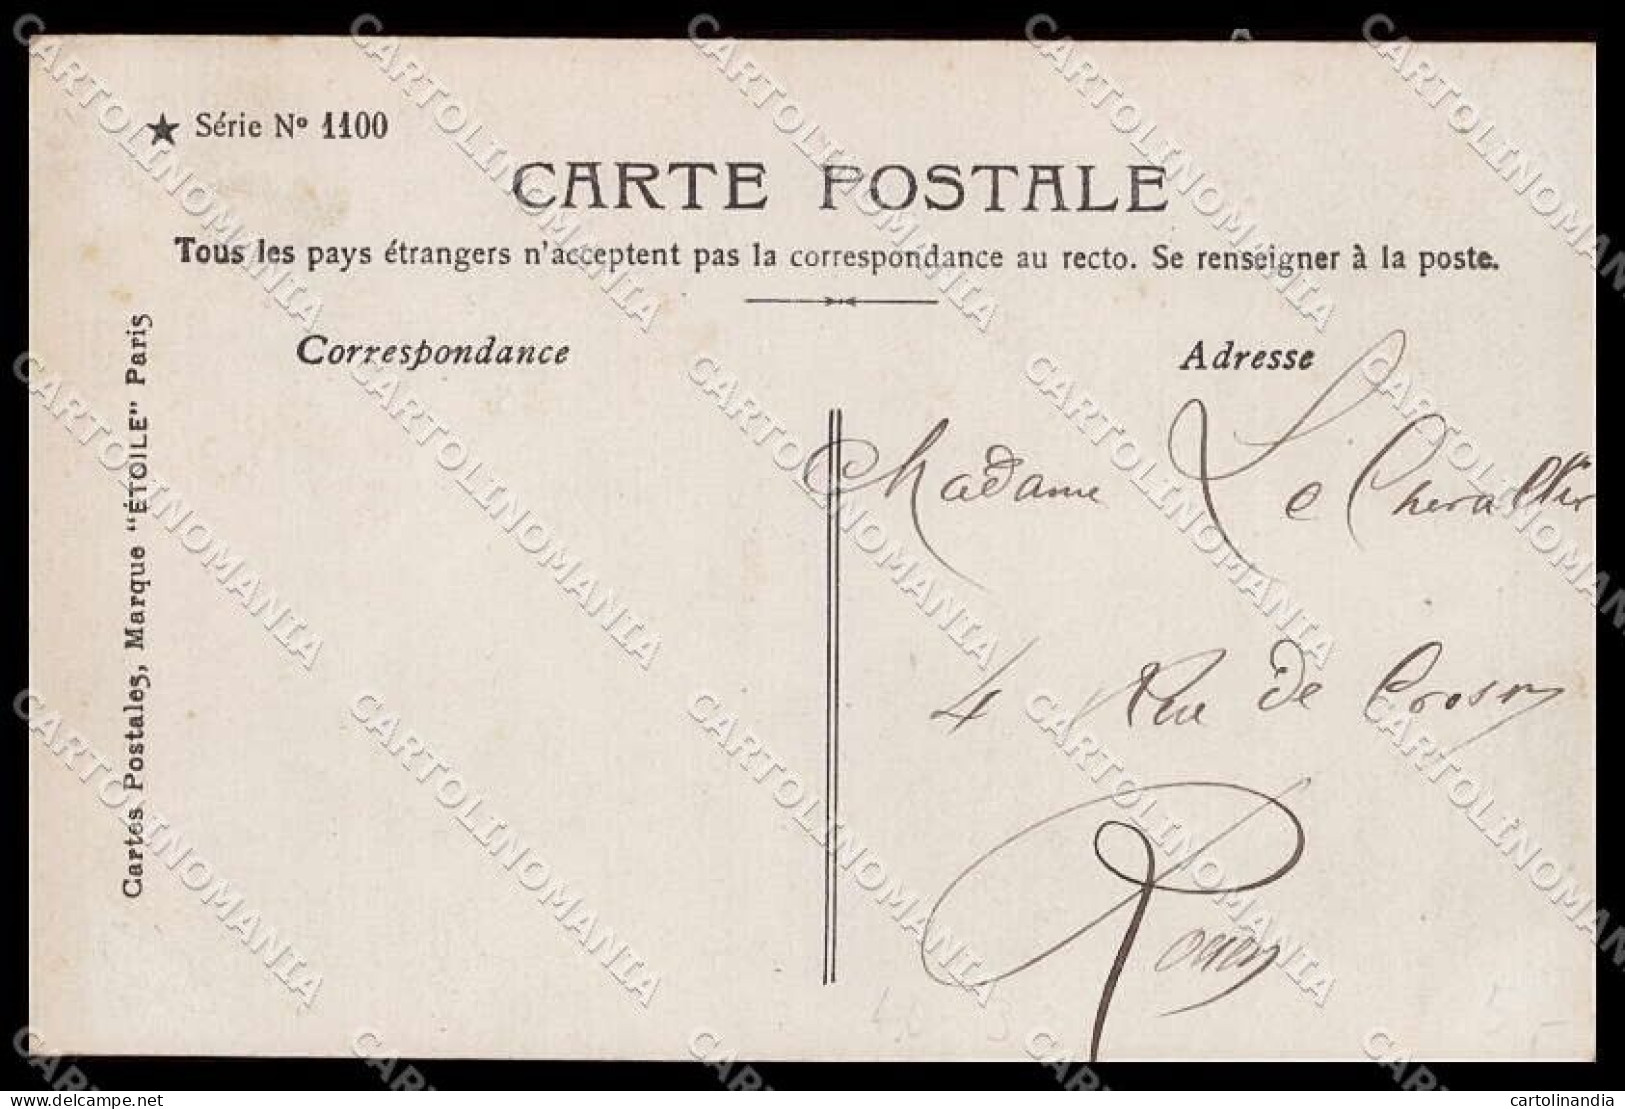 ★ Série Nº 1100
CARTE POSTALE
Tous les pays étrangers n'acceptent pas la correspondance au recto. Se renseigner à la poste.
Correspondance
Adresse
Cartes Postales, Marque "ÉTOILE" Paris
Madame Le Chevallier
4 Rue de Crosne
Rouen
CARTOLINOMANIA
delcampe.net
cartolinandia